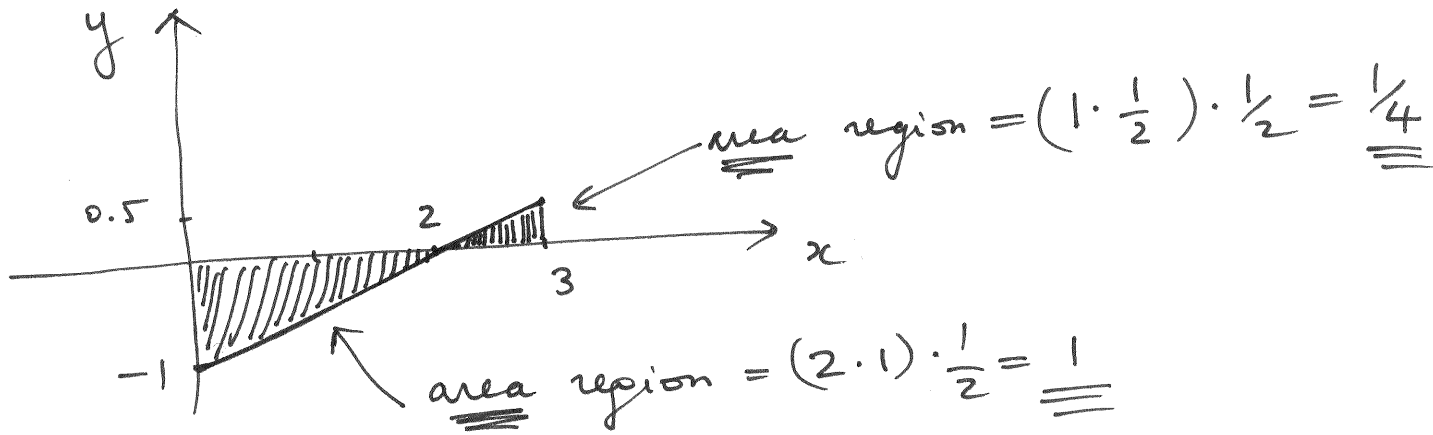 y
area region = (1 · 1/2) · 1/2 = 1/4
0.5
2
x
3
-1
area region = (2 · 1) · 1/2 = 1